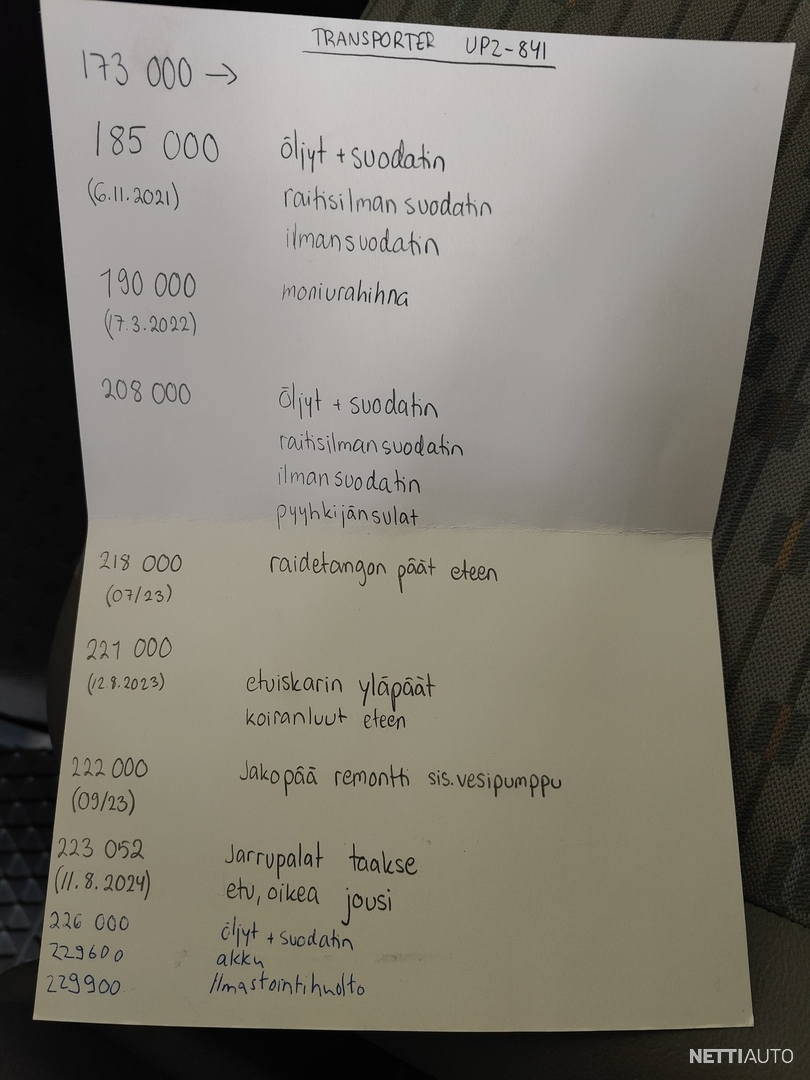 TRANSPORTER UPZ-841
173 000 →
185 000 öljyt + suodatin
(6.11.2021) raitisilman suodatin
ilmansuodatin
190 000 moniurahihna
(17.3.2022)
208 000 öljyt + suodatin
raitisilmansuodatin
ilmansuodatin
pyyhkijänsulat
218 000 raidetangon päät eteen
(07/23)
221 000
(12.8.2023) etuiskarin yläpäät
koiranluut eteen
222 000 Jakopää remontti sis.vesipumppu
(09/23)
223 052 Jarrupalat taakse
(11.8.2024) etu, oikea jousi
226 000 öljyt + suodatin
229600 akku
229900 Ilmastointihuolto
NETTIAUTO